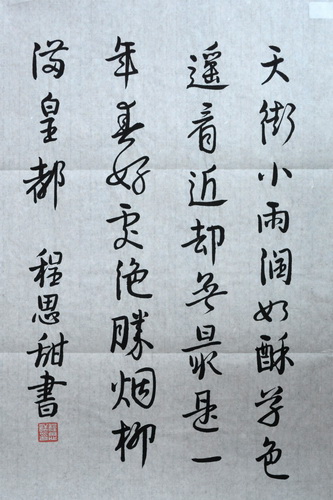 天街小雨润如酥草色
遥看近却無最是一
年春好处绝勝烟柳
满皇都 程思甜書